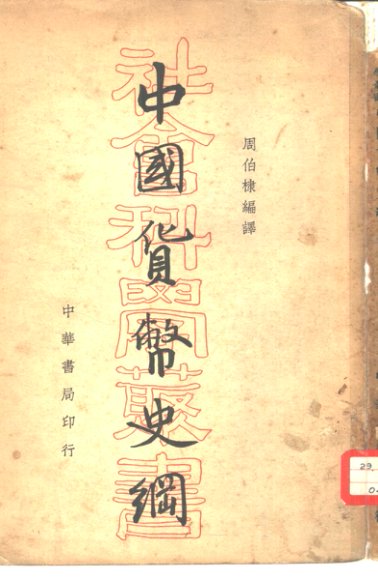 周伯棣編譯
中國貨幣史綱
社會科學叢書
中華書局印行
29